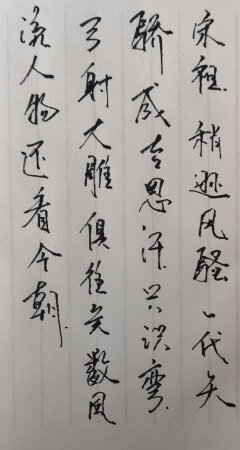 宋祖稍逊风骚一代天
骄成吉思汗只识弯
弓射大雕俱往矣数风
流人物还看今朝